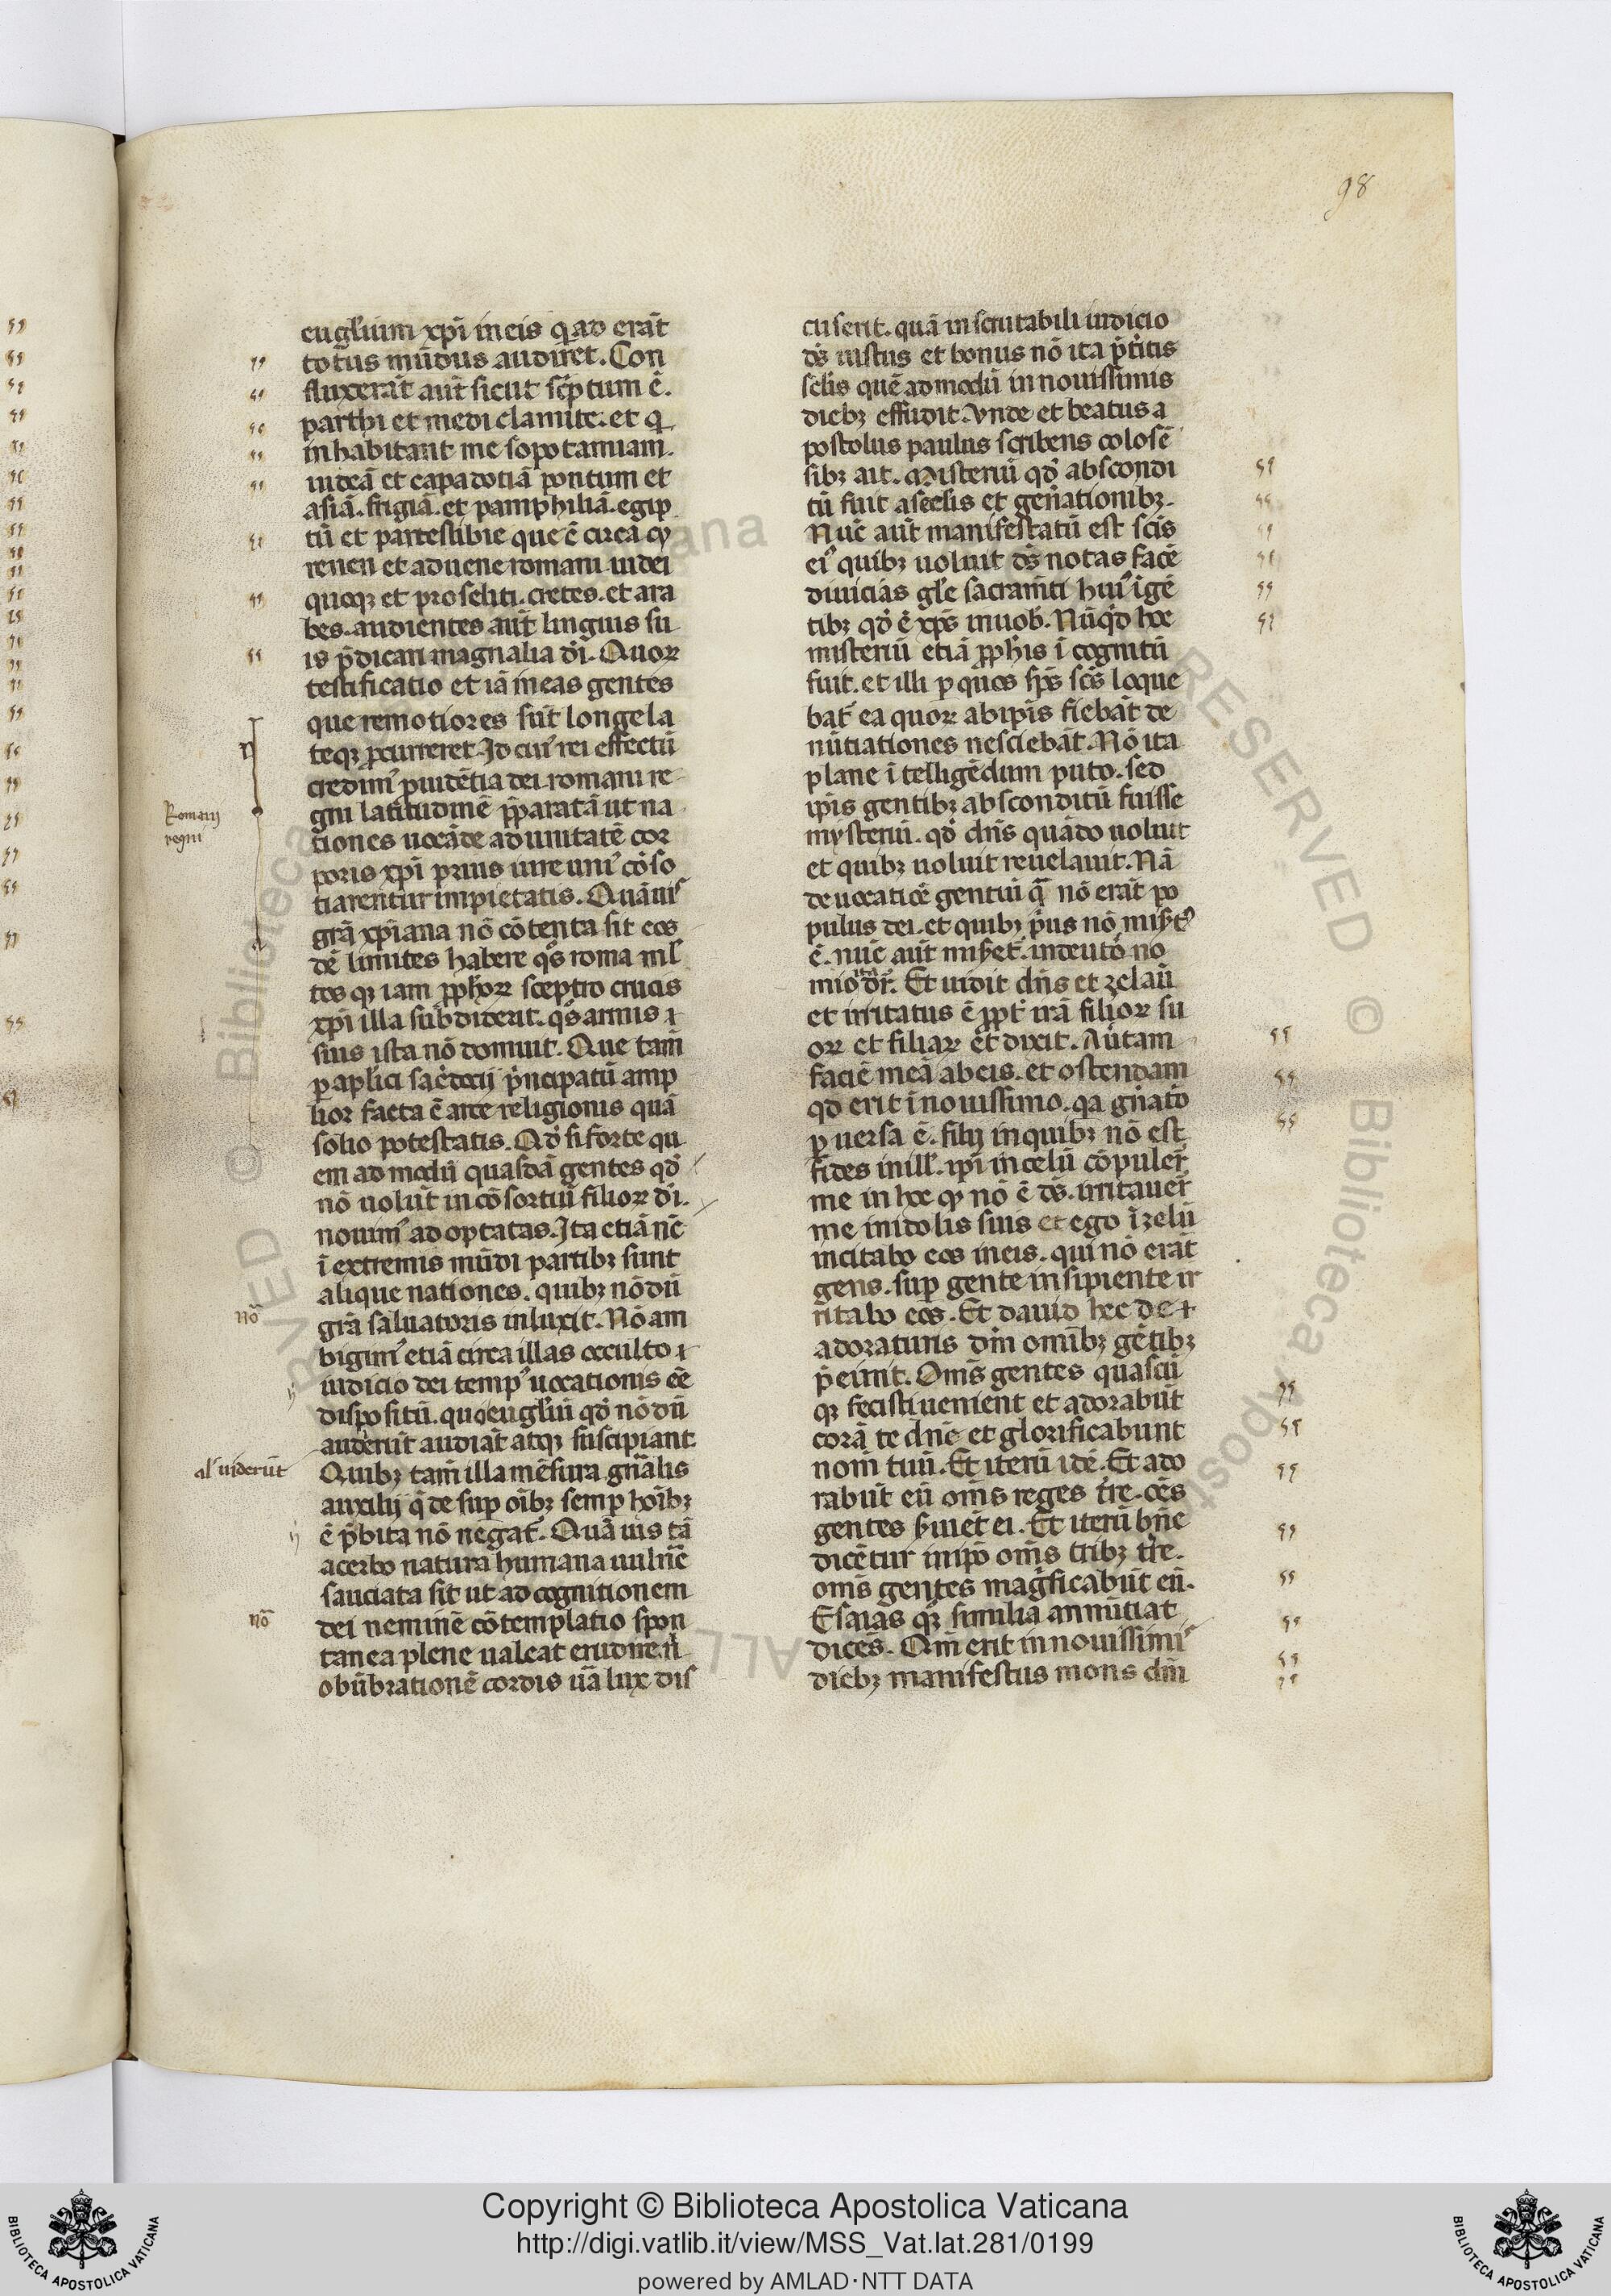 98
eugl'ium xp̄i in eis q̄ ad erāt
tot̄us mūdus audiret. Con
fluxerāt aūt sicut sc̄ptum ē.
parthi et medi elamite. et q̄
inhabitant mesopotamiam.
iudeā et capadotiā pontum et
asiā. frigiā. et pamphiliā. egip
tū et partes libie que ē circa cy
renen et aduene romani iudei
quoqꝫ et proseliti. cretes. et ara
bes. audientes aūt linguis su
is p̄dicari magnalia dī. Quoꝝ
testificatio et iā in eas gentes
que remotiores sūt longe la
teqꝫ ꝓcurreret. Ad cuiꝰ rei effectū
credimꝰ ꝓuidētia dei romani re
gni latitudinē p̄paratā ut na
tiones uocāde ad unitatē cor
poris xp̄i prius iure uniꝰ cōso
tiarentur impietatis. Quāuis
grā xp̄iana nō cōtenta sit eos
dē limites habere qˢ roma mˡ
tos qꝫ iam pp̄hoꝝ sceptro crucis
xp̄i illa subdiderit. qˢ armis ı
suis ista nō domuit. Que tam̄
ꝑ apl'ici sac̄docij p̄ncipatū amp
lior facta ē arce religionis quā
solio potestatis. Qd̓ si forte qu
em admodū quasdā gentes qd̓
nō uoluīt in cōsortiū filioꝝ dī.
nouimꝰ adoptatas. Ita etiā nc̄
ī extremis mūdi partibꝫ sunt
alique nationes. quibꝫ nōdū
grā saluatoris inluxit. Nō am
bigimꝰ etiā circa illas occulto ı
iudicio dei tempꝰ uocationis eē
dispositū. quo eugl'iū qd̓ nōdū
audierūt audiāt atqꝫ suscipiant.
Quibꝫ tam̄ illa mēsura gn̄alis
auxilij q̄ desuꝑ oībꝫ semꝑ hoībꝫ
ē p̄bita nō negat̄. Quāuis tā
acerbo natura humana uulnē
sauciata sit ut ad cognitionem
dei neminē cōtemplatio spon
tanea plene ualeat erudire. n̓
obūbrationē cordis ūa lux dis
Romani
regni
nō
al' uiderūt
nō
cuserit. quā inscrutabili iudicio
dš iustus et bonus nō ita p̄titis
sclis quē admodū in nouissimis
diebꝫ effudit. Vnde et beatus a
postolus paulus scribens colosē
sibꝫ ait. Misteriū qd̓ abscondi
tū fuit a seclis et gen̄ationibꝫ.
Nūc aūt manifestatū est scīs
eiꝰ quibꝫ uoluit dš notas facē
diuicias gl'e sacram̄ti huiꝰ ī gē
tibꝫ qd̓ ē xp̄s in uob̓. Nūqd̓ hoc
misteriū etiā pp̄his ī cognitū
fuit. et illi ꝑ quos sp̄s sc̄s loque
bat̄ ea quoꝝ ab ip̄is fiebāt de
nūtiationes nesciebāt. Nō ita
plane ī telligēdum puto. sed
ip̄is gentibꝫ absconditū fuisse
mysteriū. qd̓ dn̄s quādo uoluit
et quibꝫ uoluit reuelauit. Nā
de uocatiōe gentiū q̄ nō erāt po
pulus dei. et quibꝫ p̄us nō mis̄tꝰ
ē. nūc aūt mis̄et̄. in deut̓o no
mio ita dr̄. Et uidit dn̄s et zelaū
et irritatus ē ꝓpt̄ irā filioꝝ su
oꝝ et filiaꝝ et dixit. Au̓tam
faciē meā ab eis. et ostendam
qd erit ī nouissimo. qa gn̄atō
ꝑuersa ē. filij in quibꝫ nō est
fides in illˢ. ip̄i in celū cōpuler̄
me in hoc qꝫ nō ē dš. irritauer̄
me in idolis suis et ego ī zelū
incitabo eos in eis. qui nō erāt
gens. suꝑ gente insipiente ir
ritabo eos. Et dauid hec de ı
adoraturis dm̄ omībꝫ gētibꝫ
p̄cinit. Om̄s gentes quascū
qꝫ fecisti uenient et adorabūt
corā te dn̄e et glorificabunt
nom̄ tuū. Et iterū idē. Et ado
rabūt eū om̄s reges tr̄e. oēs
gentes s̄uiēt ei. Et iterū bn̄e
dicētur in ip̄o om̄s tribꝫ tr̄e.
om̄s gentes mag̓ficabūt eū.
Esaias qꝫ similia annūtiat
dicēs. Qm̄ erit in nouissimiˢ
diebꝫ manifestus mons dm̄
Copyright © Biblioteca Apostolica Vaticana
http://digi.vatlib.it/view/MSS_Vat.lat.281/0199
powered by AMLAD·NTT DATA
BIBLIOTECA APOSTOLICA VATICANA
BIBLIOTECA APOSTOLICA VATICANA